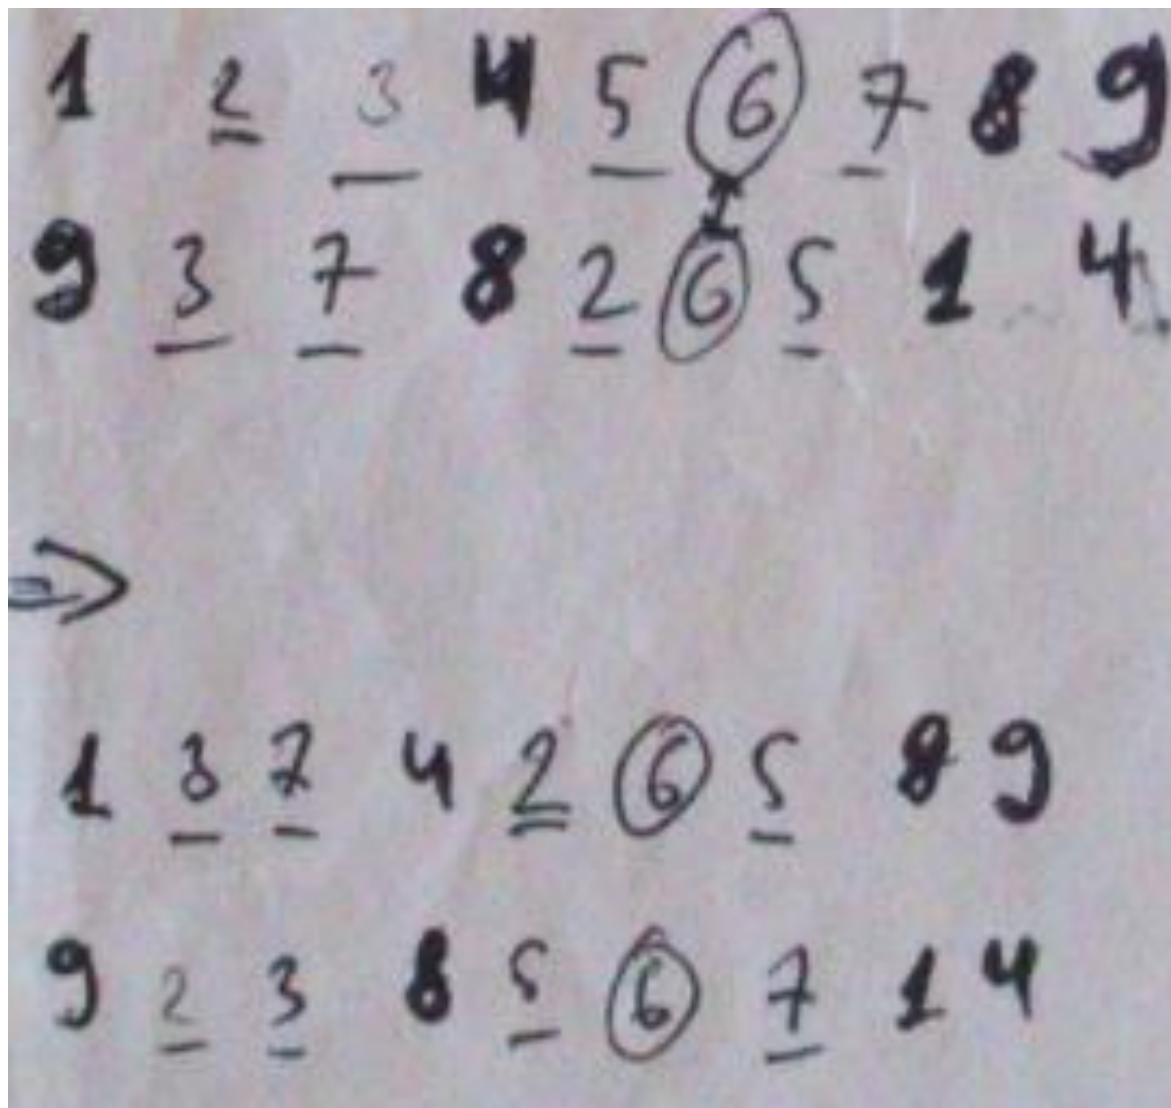 1 2 3 4 5 6 7 8 9
9 3 7 8 2 6 5 1 4
⇒
1 3 7 4 2 6 5 8 9
9 2 3 8 5 6 7 1 4